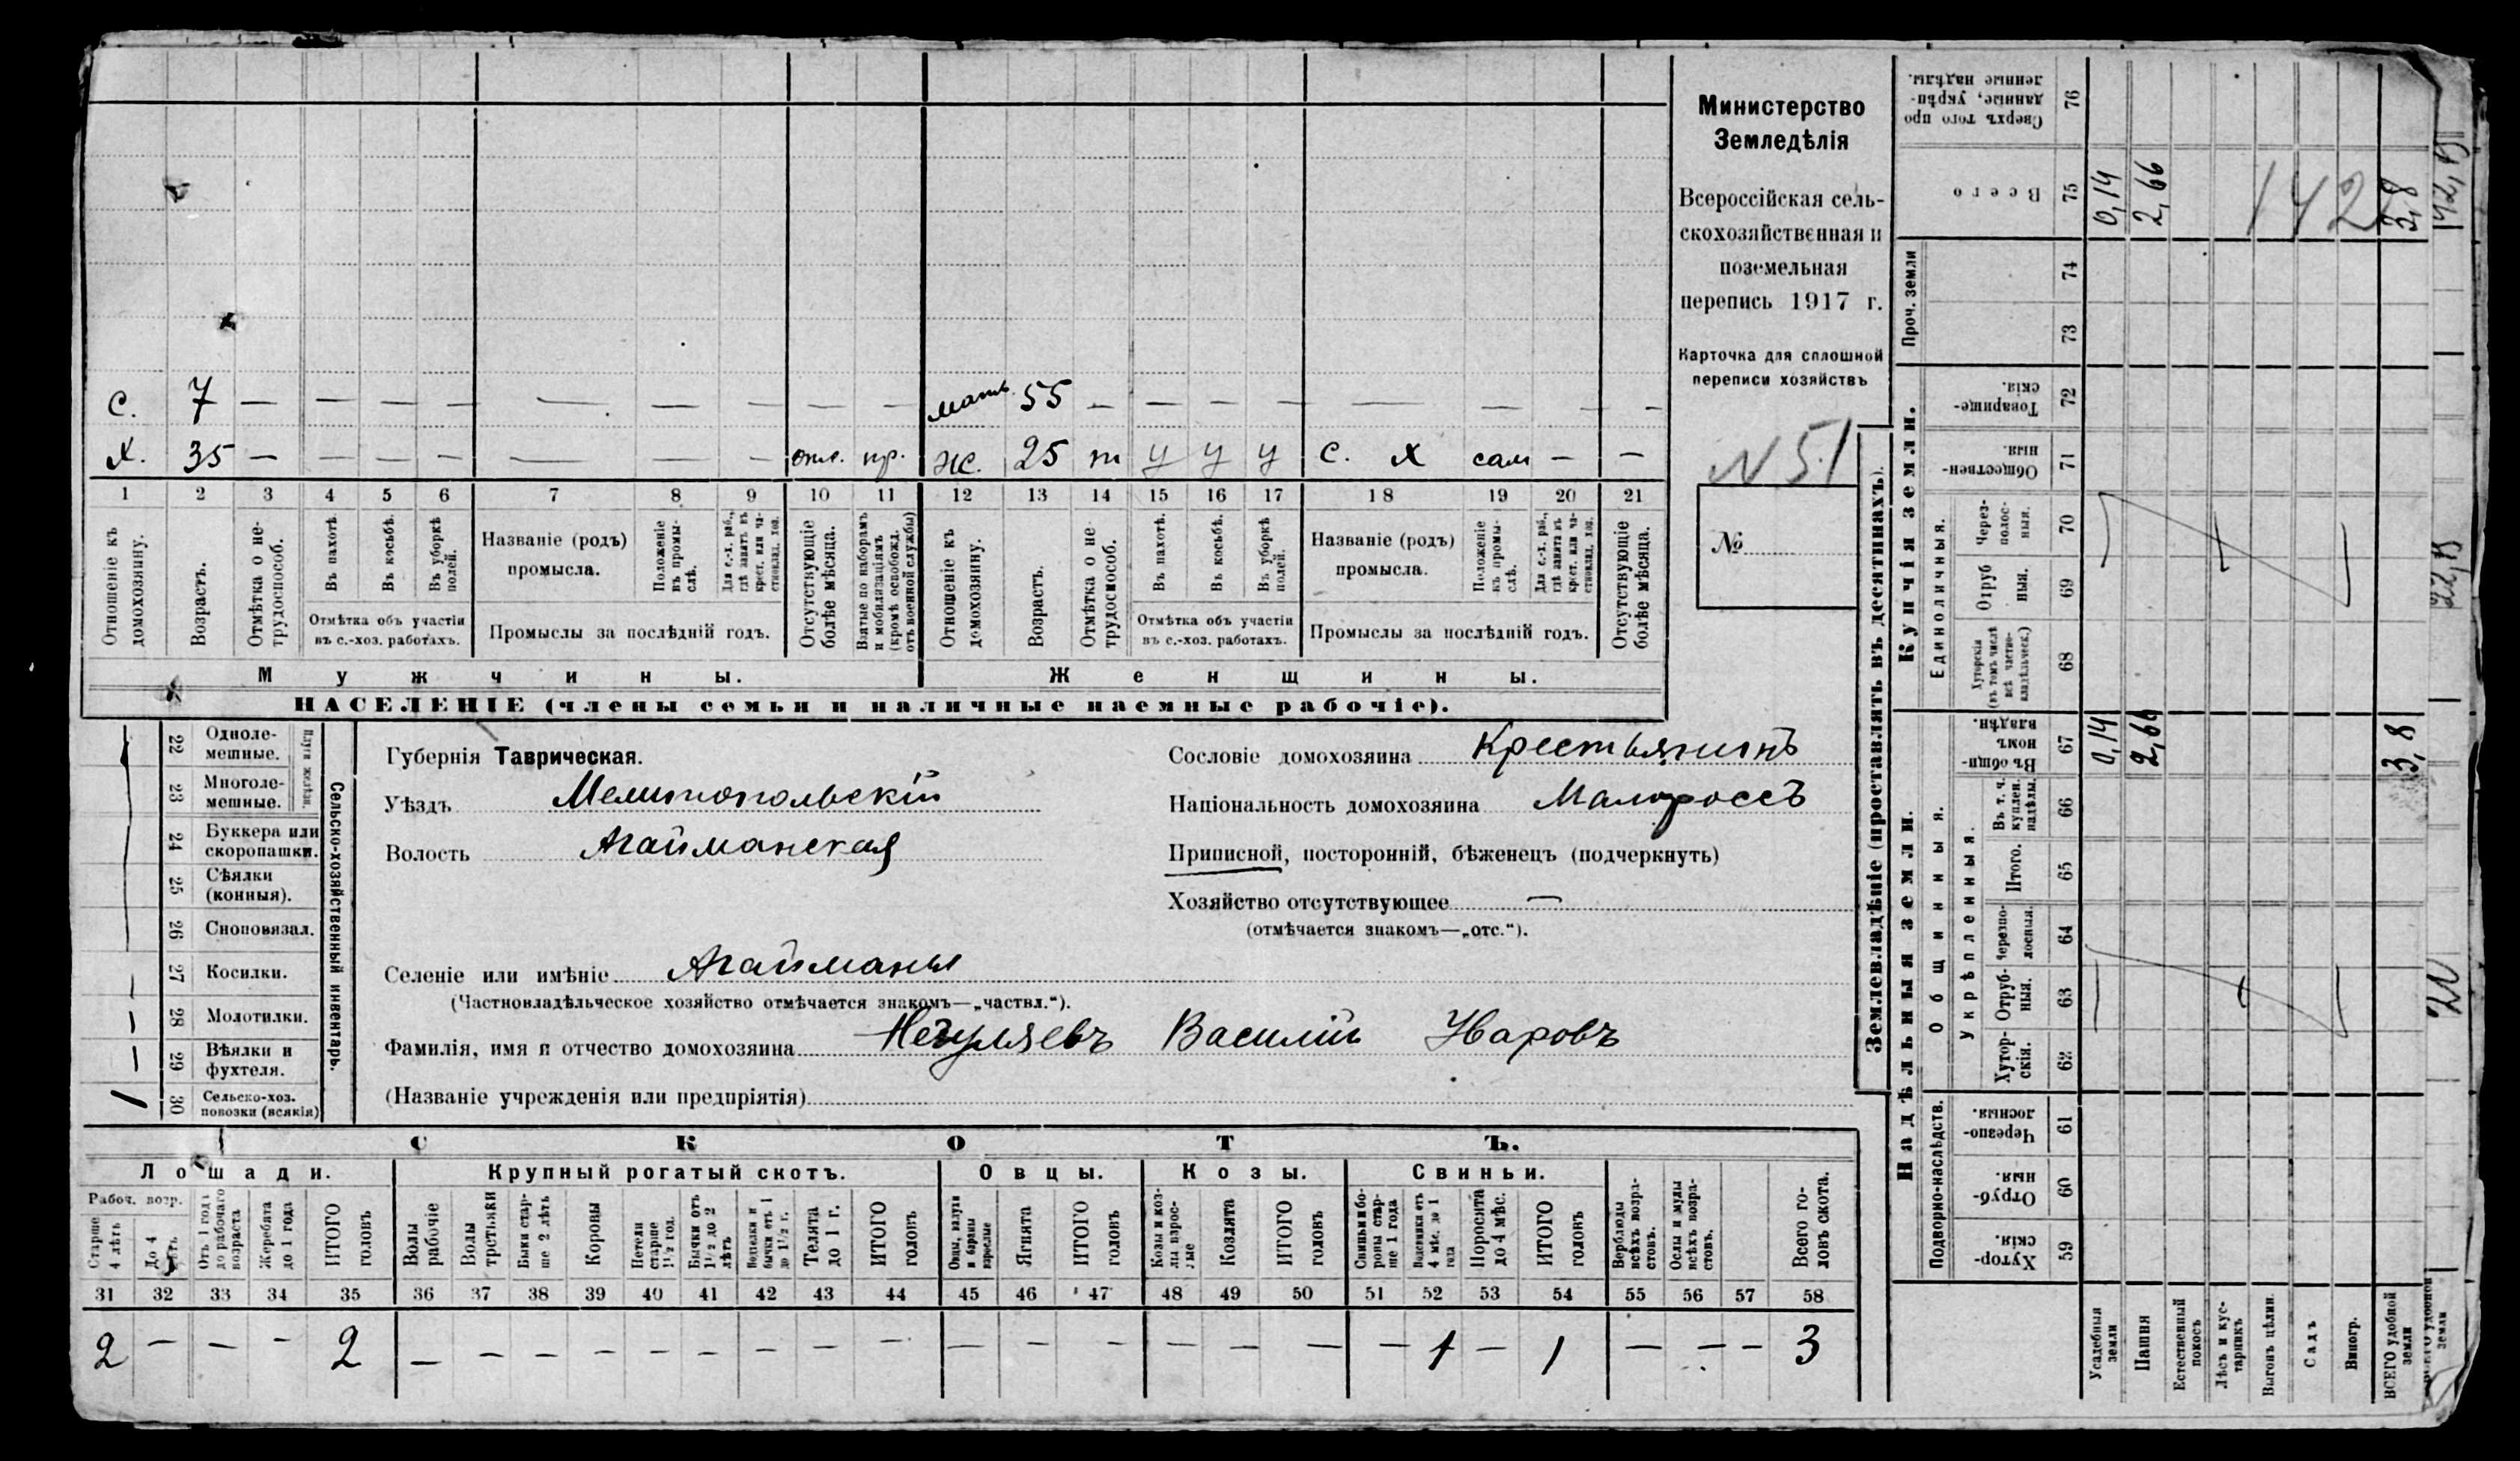 с. 7 — — — — — — — — — мать 55 — — — — — — — —
х. 35 — — — — — — — отл. пр. ж. 25 т у у у с. х сам — —
1 2 3 4 5 6 7 8 9 10 11 12 13 14 15 16 17 18 19 20 21
Отношеніе къ домохозяину.
Возрастъ.
Отмѣтка о не-трудоспособ.
Въ пахотѣ.
Въ косьбѣ.
Въ уборкѣ полей.
Отмѣтка объ участіи
въ с.-хоз. работахъ.
Названіе (родъ)
промысла.
Положеніе въ промы-слѣ.
Для с.-х. раб., гдѣ занятъ въ крест. или ча-стновлад. хоз.
Промыслы за послѣдній годъ.
Отсутствующіе болѣе мѣсяца.
Взятые по наборамъ и мобилизаціямъ (кромѣ освобожд. отъ военной службы)
Отношеніе къ домохозяину.
Возрастъ.
Отмѣтка о не-трудоспособ.
Въ пахотѣ.
Въ косьбѣ.
Въ уборкѣ полей.
Отмѣтка объ участіи
въ с.-хоз. работахъ.
Названіе (родъ)
промысла.
Положеніе къ промы-слѣ.
Для с.-х. раб., гдѣ занята въ крест. или ча-стновлад. хоз.
Промыслы за послѣдній годъ.
Отсутствующіе болѣе мѣсяца.
Мужчины.
Женщины.
НАСЕЛЕНІЕ (члены семьи и наличные наемные рабочіе).
Министерство
Земледѣлія
Всероссійская сель-
скохозяйственная и
поземельная
перепись 1917 г.
Карточка для сплошной
переписи хозяйствъ
N 51
№
22 Одноле-мешные.
23 Многоле-мешные.
Плуги желѣзн.
24 Буккера или скоропашки.
25 Сѣялки (конныя).
26 Сноповязал.
— 27 Косилки.
— 28 Молотилки.
— 29 Вѣялки и фухтеля.
1 30 Сельско-хоз. повозки (всякія)
Сельско-хозяйственный инвентарь.
Губернія Таврическая.
Уѣздъ Мелитопольскій
Волость Агайманская
Селеніе или имѣніе Агайманы
(Частновладѣльческое хозяйство отмѣчается знакомъ—„частвл.“).
Фамилія, имя и отчество домохозяина Негуляевъ Василій Уваровъ
(Названіе учрежденія или предпріятія)
Сословіе домохозяина Крестьянинъ
Національность домохозяина Малороссъ
Приписной, посторонній, бѣженецъ (подчеркнуть)
Хозяйство отсутствующее —
(отмѣчается знакомъ—„отс.“).
СКОТЪ.
Лошади. Крупный рогатый скотъ. Овцы. Козы. Свиньи.
Рабоч. возр.
Старше 4 лѣтъ
До 4 лѣтъ
Отъ 1 года до рабочаго возраста
Жеребята до 1 года
ИТОГО головъ
Волы рабочіе
Волы третьяки
Быки стар-ше 2 лѣтъ
Коровы
Нетели старше 1½ год.
Бычки отъ 1½ до 2 лѣтъ
бычки отъ 1 до 1½ г.
Телята до 1 г.
ИТОГО головъ
Овцы, валухи и бараны взрослые
Ягнята
ИТОГО головъ
Козы и коз-лы взрос-лые
Козлята
ИТОГО головъ
Свиньи и бо-ровы стар-ше 1 года
Подсвинки отъ 4 мѣс. до 1 года
Поросята до 4 мѣс.
ИТОГО головъ
Верблюды всѣхъ возра-стовъ.
Ослы и мулы всѣхъ возра-стовъ.
Всего го-ловъ скота.
31 32 33 34 35 36 37 38 39 40 41 42 43 44 45 46 47 48 49 50 51 52 53 54 55 56 57 58
2 — — — 2 — — — — — — — — — — — — — — — — 1 — 1 — — — 3
Землевладѣніе (проставлять въ десятинахъ).
Надѣльныя земли.
Купчія земли.
Проч. земли
Подворно-наслѣдств.
Общинныя.
Укрѣпленныя.
Единоличныя.
Сверхъ того про данные, укрѣп-ленные надѣлы. 76
Всего 75 0,14 2,66 142 3,8 142,5
74
73
Товарище-скія. 72
Обществен-ныя. 71
Через-полос-ныя. 70
Отруб ныя. 69
Хуторскія (въ томъ числѣ всѣ частно-владѣльческ.) 68
Въ общи-номъ владѣн. 67 0,14 2,66 3,8
Въ т. ч. куплен. надѣлы 66
Итого. 65
Черезпо-лосныя. 64
Отруб-ныя. 63
Хутор-скія. 62
Черезпо-лосныя. 61
Отруб-ныя. 60
Хутор-скія. 59
Усадебныя земли
Пашня
Естественный покосъ
Лѣсъ и кус-тарникъ
Выгонъ цѣлин.
Садъ
Виногр.
ВСЕГО удобной земли